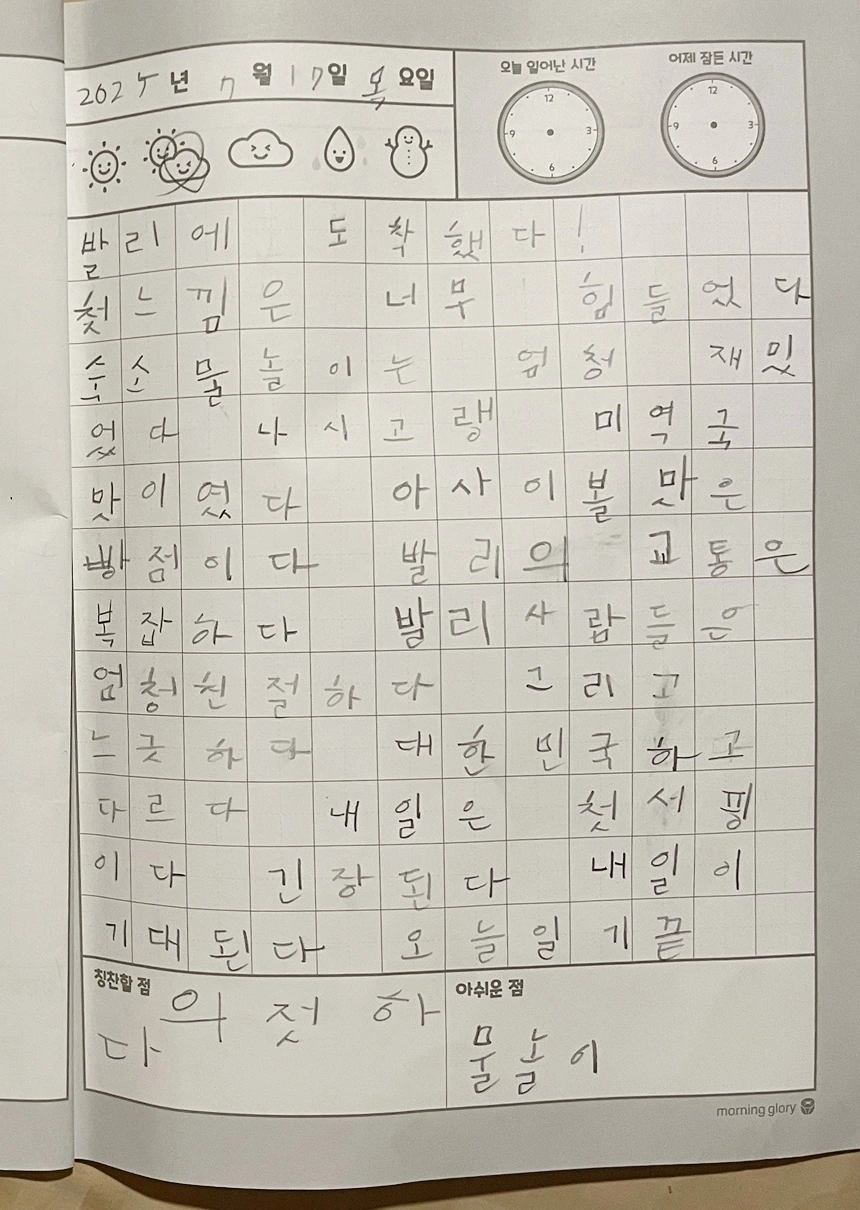 2025년 7월 17일 목요일
오늘 일어난 시간
어제 잠든 시간
12
3
6
9
12
3
6
9
발리에 도착했다!
첫느낌은 너무 힘들었다
숙소물놀이는 엄청 재밌
었다 나시고랭 미역국
맛이였다 아사이볼맛은
빵점이다 발리의 교통은
복잡하다 발리사람들은
엄청친절하다 그리고
느긋하다 대한민국하고
다르다 내일은 첫서핑
이다 긴장된다 내일이
기대된다 오늘일기끝
칭찬할 점
의젓하
다
아쉬운 점
물놀이
morning glory